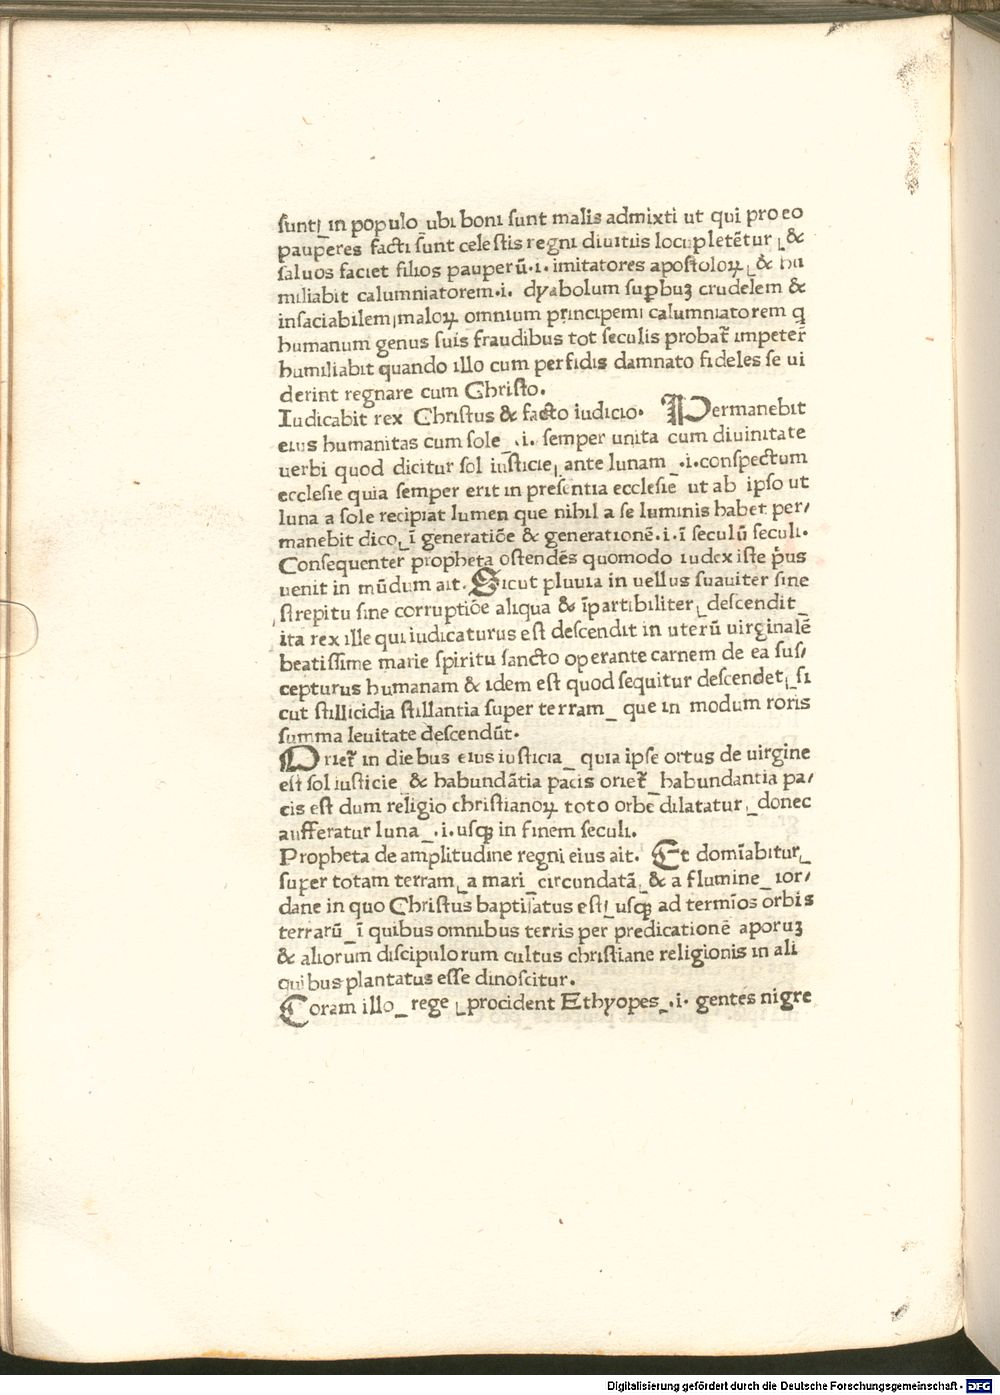 sunt⸤ in populo ubi boni sunt malis admixti ut qui pro eo
pauperes facti sunt celestis regni diuitiis locupletētur ⸤&
saluos faciet filios pauperū.i. imitatores apostoloꝝ ⸤& hu
miliabit calumniatorem.i. dyabolum suꝑbuꝫ crudelem &
insaciabilem⸤maloꝝ omnium principem⸤ calumniatorem q̄
humanum genus suis fraudibus tot seculis probat̄ impeter̄
humiliabit quando illo cum perfidis damnato fideles se ui
derint regnare cum Christo.
Iudicabit rex Christus & facto iudicio. Permanebit
eius humanitas cum sole .i. semper unita cum diuinitate
uerbi quod dicitur sol iusticie⸤ ante lunam .i. conspectum
ecclesie quia semper erit in presentia ecclesie ut ab ipso ut
luna a sole recipiat lumen que nihil a se luminis habet per/
manebit dico⸤ ī generatiōe & generationē.i.ī seculū seculi.
Consequenter propheta ostendēs quomodo iudex iste p̄us
uenit in mūdum ait. Sicut pluuia in uellus suauiter sine
strepitu sine corruptiōe aliqua & īpartibiliter⸤ descendit
ita rex ille qui iudicaturus est descendit in uterū uirginalē
beatissime marie spiritu sancto operante carnem de ea sus/
cepturus humanam & idem est quod sequitur descendet⸤ si
cut stillicidia stillantia super terram que in modum roris
summa leuitate descendūt.
Oriet̄ in diebus eius iusticia quia ipse ortus de uirgine
est sol iusticie & habundātia pacis oriet̄ habundantia pa/
cis est dum religio christianoꝝ toto orbe dilatatur⸤ donec
aufferatur luna .i. usqꝫ in finem seculi.
Propheta de amplitudine regni eius ait. Et domīabitur⸤
super totam terram⸤ a mari circundatā⸤ & a flumine ior/
dane in quo Christus baptisatus est⸤ usqꝫ ad termīos orbis
terrarū ī quibus omnibus terris per predicationē aporuꝫ
& aliorum discipulorum cultus christiane religionis in ali
quibus plantatus esse dinoscitur.
Coram illo rege ⸤procident Ethyopes .i. gentes nigre
Digitalisierung gefördert durch die Deutsche Forschungsgemeinschaft - DFG